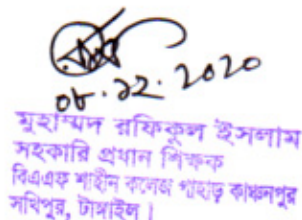 ০৮.১২.২০২০
মুহাম্মদ রফিকুল ইসলাম
সহকারি প্রধান শিক্ষক
বিএএফ শাহীন কলেজ পাহাড় কাঞ্চনপুর
সখিপুর, টাঙ্গাইল।